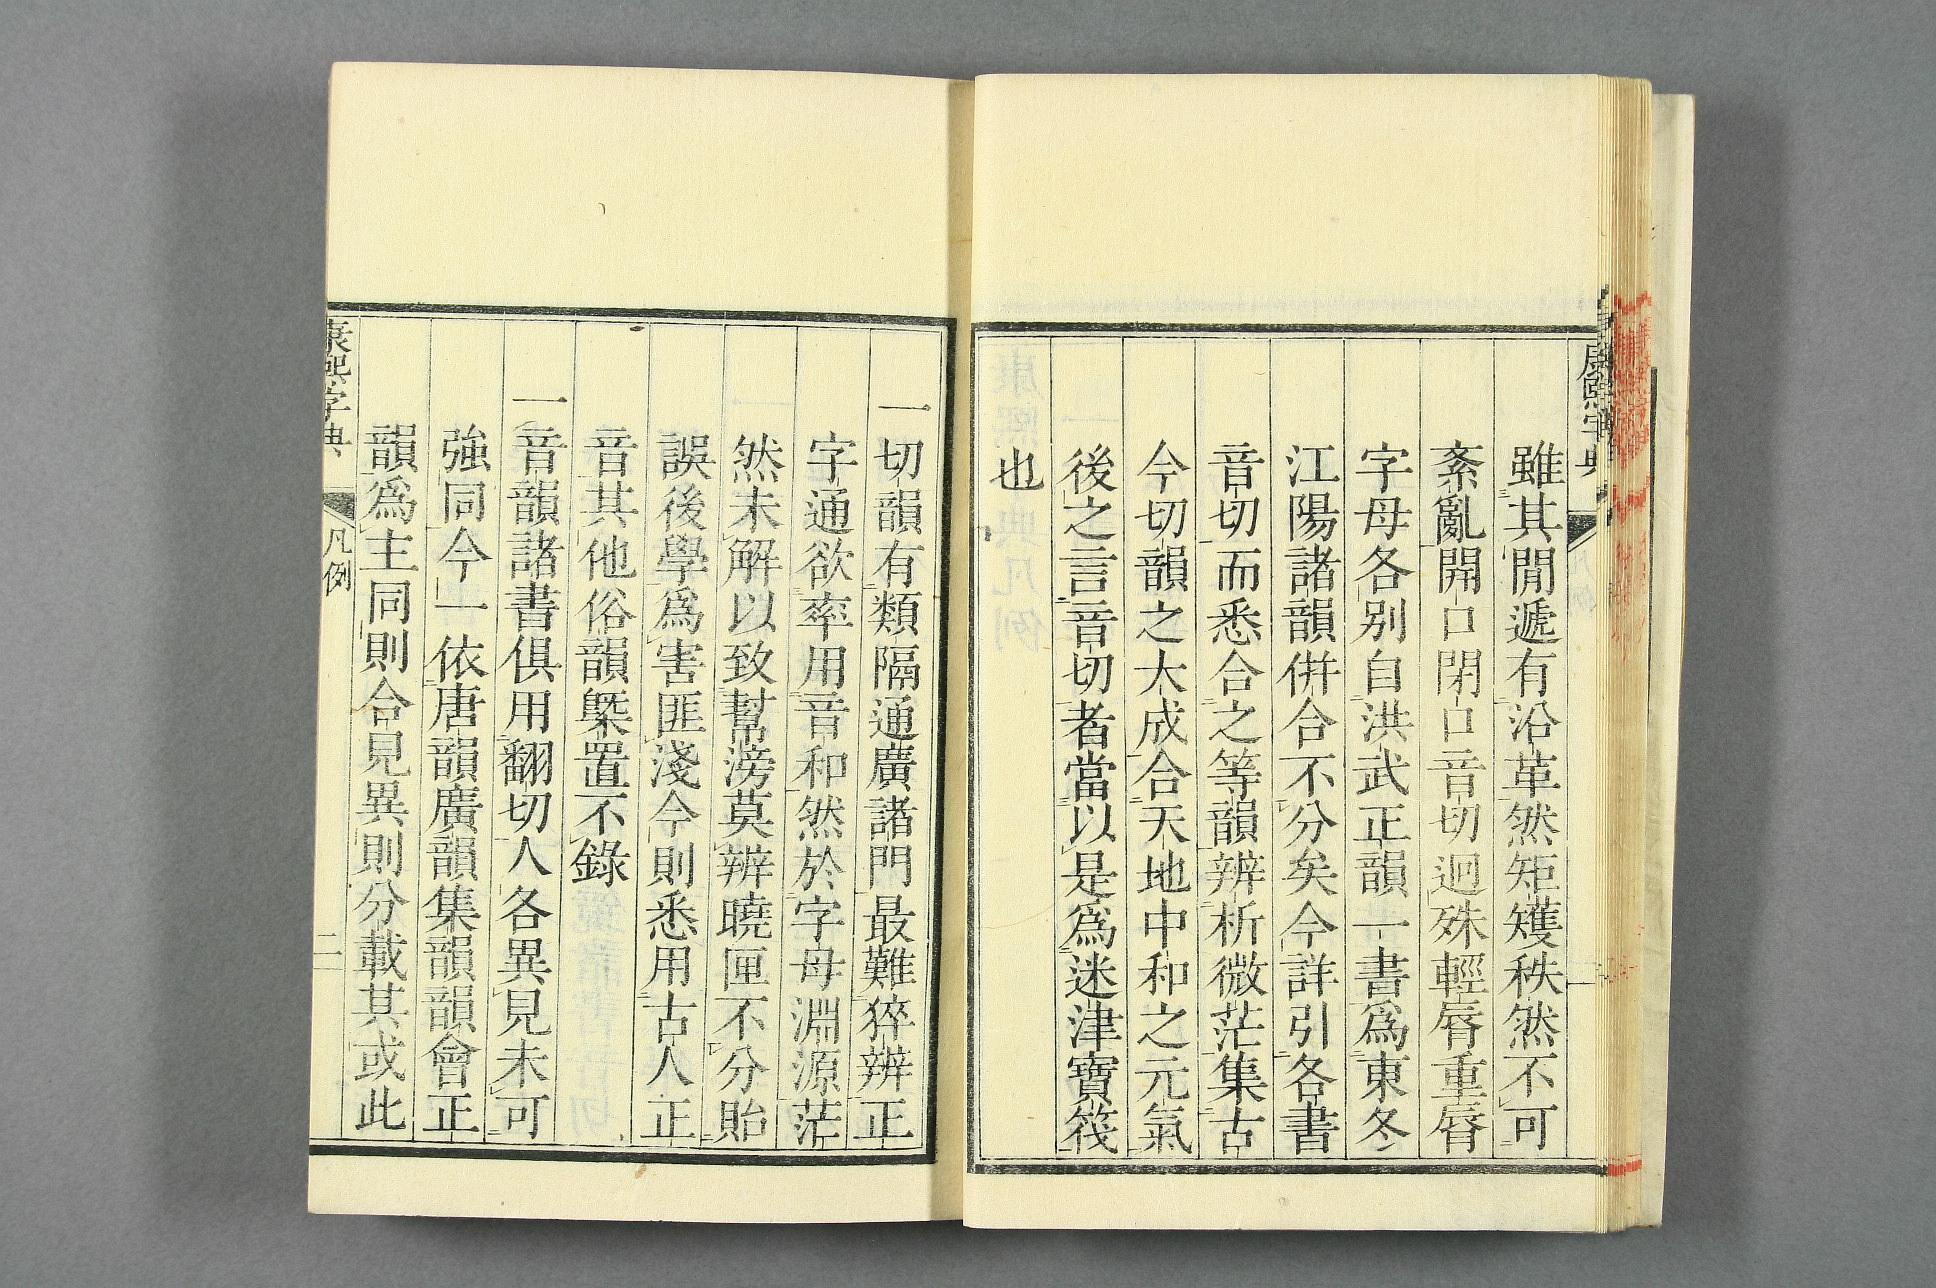 康熙字典
雖其閒遞有沿革然矩矱秩然不可
紊亂開口閉口音切迥殊輕脣重脣
字母各別自洪武正韻一書爲東冬
江陽諸韻倂合不分矣今詳引各書
音切而悉合之等韻辨析微茫集古
今切韻之大成合天地中和之元氣
後之言音切者當以是爲迷津寶筏
也
一切韻有類隔通廣諸門最難猝辨正
字通欲率用音和然於字母淵源茫
然未解以致幫滂莫辨曉匣不分貽
誤後學爲害匪淺今則悉用古人正
音其他俗韻槩置不錄
一音韻諸書俱用翻切人各異見未可
強同今一依唐韻廣韻集韻韻會正
韻爲主同則合見異則分載其或此
康熙字典
凡例
二